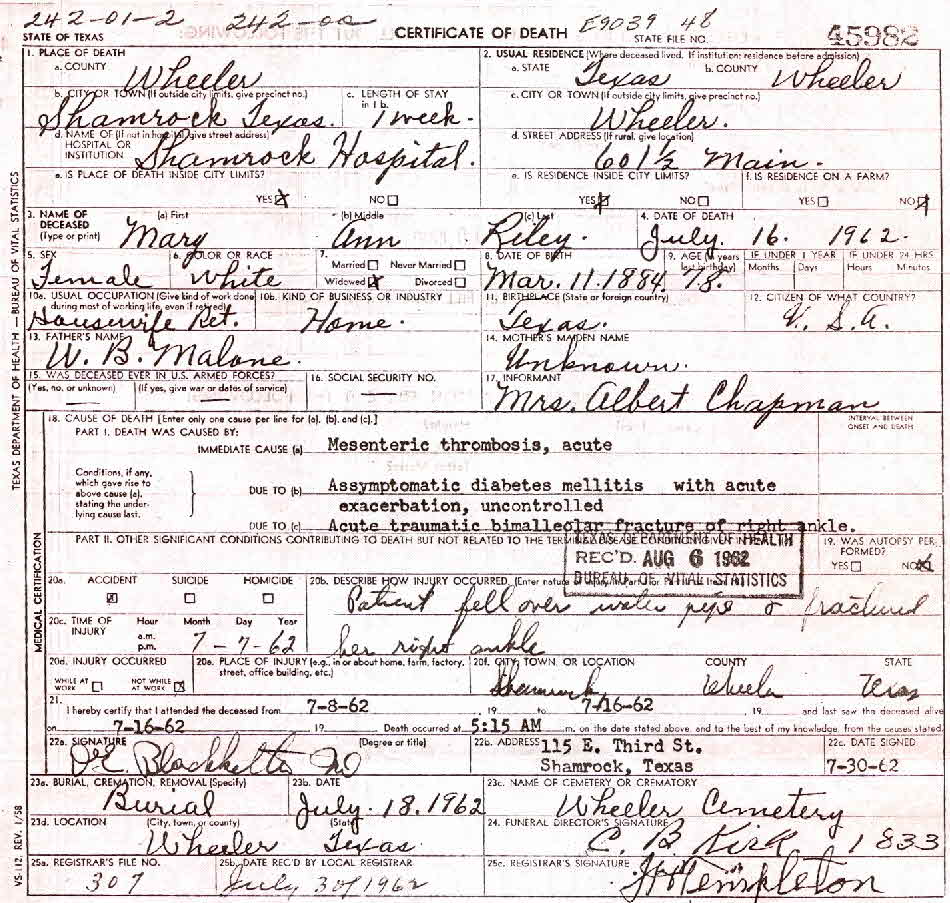 242-01-2 242-00 E9039 48
STATE OF TEXAS CERTIFICATE OF DEATH STATE FILE NO. 45982
1. PLACE OF DEATH
a. COUNTY Wheeler
2. USUAL RESIDENCE (Where deceased lived. If institution: residence before admission)
a. STATE Texas b. COUNTY Wheeler
b. CITY OR TOWN (If outside city limits, give precinct no.) Shamrock Texas.
c. LENGTH OF STAY in 1 b. 1 week.
c. CITY OR TOWN (If outside city limits, give precinct no.) Wheeler.
d. NAME OF (If not in hospital, give street address) HOSPITAL OR INSTITUTION Shamrock Hospital.
d. STREET ADDRESS (If rural, give location) 601½ Main.
e. IS PLACE OF DEATH INSIDE CITY LIMITS?
YES X NO
e. IS RESIDENCE INSIDE CITY LIMITS?
YES X NO
f. IS RESIDENCE ON A FARM?
YES NO X
3. NAME OF DECEASED (Type or print)
(a) First Mary (b) Middle Ann (c) Last Riley.
4. DATE OF DEATH July. 16. 1962.
5. SEX Female
6. COLOR OR RACE White
7. Married Never Married
Widowed X Divorced
8. DATE OF BIRTH Mar. 11. 1884.
9. AGE (In years last birthday) 78.
IF UNDER 1 YEAR Months Days
IF UNDER 24 HRS Hours Minutes
10a. USUAL OCCUPATION (Give kind of work done during most of working life, even if retired) Housewife Ret.
10b. KIND OF BUSINESS OR INDUSTRY Home.
11. BIRTHPLACE (State or foreign country) Texas.
12. CITIZEN OF WHAT COUNTRY? U. S. A.
13. FATHER'S NAME W. B. Malone.
14. MOTHER'S MAIDEN NAME Unknown.
15. WAS DECEASED EVER IN U.S. ARMED FORCES?
(Yes, no, or unknown) (If yes, give war or dates of service)
16. SOCIAL SECURITY NO.
17. INFORMANT Mrs. Albert Chapman
18. CAUSE OF DEATH [Enter only one cause per line for (a), (b), and (c).]
INTERVAL BETWEEN ONSET AND DEATH
PART I. DEATH WAS CAUSED BY:
IMMEDIATE CAUSE (a) Mesenteric thrombosis, acute
Conditions, if any, which gave rise to above cause (a), stating the underlying cause last.
DUE TO (b) Assymptomatic diabetes mellitis with acute
exacerbation, uncontrolled
DUE TO (c) Acute traumatic bimalleolar fracture of right ankle.
PART II. OTHER SIGNIFICANT CONDITIONS CONTRIBUTING TO DEATH BUT NOT RELATED TO THE
TEXAS DEPARTMENT OF HEALTH
REC'D AUG 6 1962
BUREAU OF VITAL STATISTICS
19. WAS AUTOPSY PERFORMED?
YES NO X
20a. ACCIDENT SUICIDE HOMICIDE
X
20b. DESCRIBE HOW INJURY OCCURRED. (Enter nature
Patient fell over water pipe & fractured
her right ankle
20c. TIME OF INJURY Hour Month Day Year
a.m.
p.m. 7-7-62
20d. INJURY OCCURRED
WHILE AT WORK NOT WHILE AT WORK X
20e. PLACE OF INJURY (e.g., in or about home, farm, factory, street, office building, etc.)
20f. CITY, TOWN, OR LOCATION COUNTY STATE
Shamrock Wheeler Texas
21. I hereby certify that I attended the deceased from 7-8-62 19 to 7-16-62 19 and last saw the deceased alive
on 7-16-62 19 Death occurred at 5:15 AM m. on the date stated above, and to the best of my knowledge, from the causes stated.
22a. SIGNATURE (Degree or title)
Blackketter MD
22b. ADDRESS 115 E. Third St.
Shamrock, Texas
22c. DATE SIGNED
7-30-62
23a. BURIAL, CREMATION, REMOVAL (Specify) Burial
23b. DATE July. 18. 1962
23c. NAME OF CEMETERY OR CREMATORY Wheeler Cemetery
23d. LOCATION (City, town, or county) (State)
Wheeler Texas.
24. FUNERAL DIRECTOR'S SIGNATURE
C. B. Kirk 1833
25a. REGISTRAR'S FILE NO. 307
25b. DATE REC'D BY LOCAL REGISTRAR July 30, 1962
25c. REGISTRAR'S SIGNATURE Templeton
TEXAS DEPARTMENT OF HEALTH — BUREAU OF VITAL STATISTICS
MEDICAL CERTIFICATION
VS-112, REV. 1/58